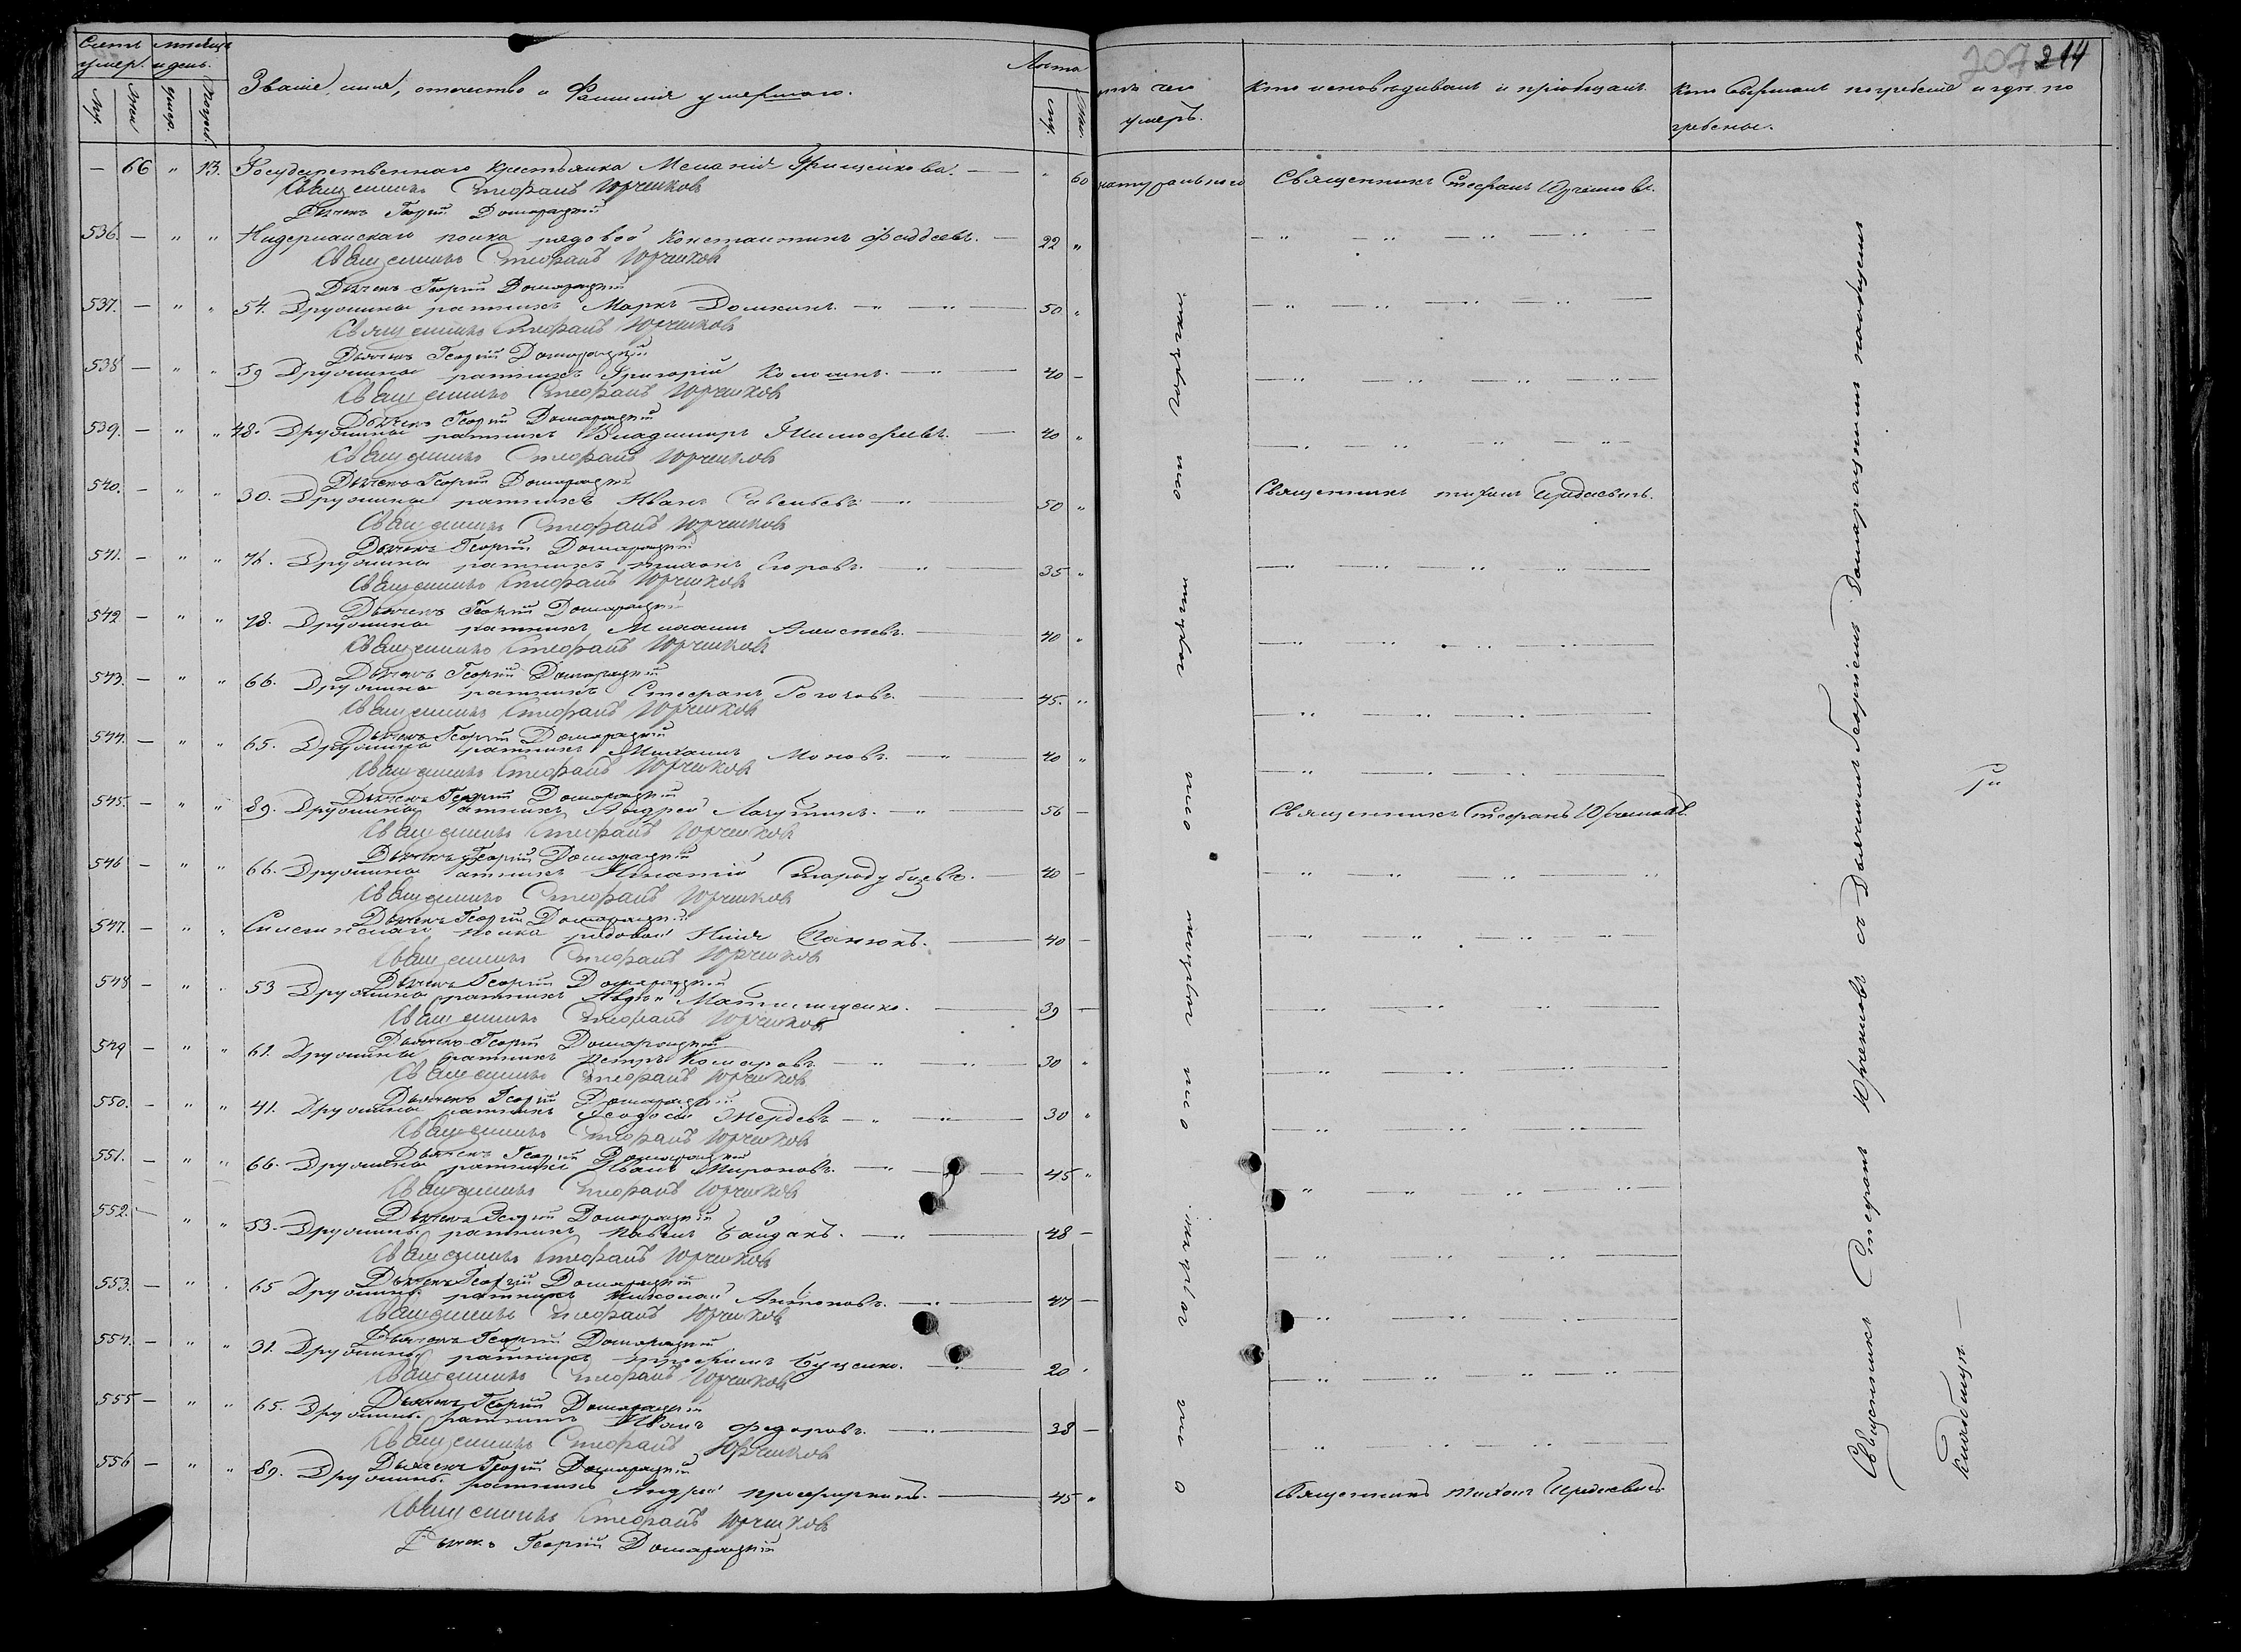 Счетъ умер. мѣсяцъ и день. Званіе, имя, отчество и Фамилія умершаго. Лѣта отъ чего умеръ. Кто исповѣдывалъ и пріобщалъ Кто совершалъ погребеніе и гдѣ погребены.
207 214
Муж. Жен. Умер. Погреб. муж. жен.
— 66 " 13. Государственнаго крестьянка Меланія Грищенкова. — " 60 натуральной Священникъ Стефанъ Юрченковъ.
Священникъ Стефанъ Юрченковъ
Дьячекъ Георгій Домарацкій
536. — " " Нидерланскаго полка рядовой Константинъ Фаддеевъ. — 22 "
Священникъ Стефанъ Юрченковъ
Дьячекъ Георгій Домарацкій
537. — " " 54. Дружины ратникъ Маркъ Домкинъ. — 50 "
Священникъ Стефанъ Юрченковъ
Дьячекъ Георгій Домарацкій
538 — " " 59 Дружины ратникъ Григорій — 40 —
Священникъ Стефанъ Юрченковъ
Дьячекъ Георгій Домарацкій
539. — " " 48. Дружины ратникъ Владимиръ Тимофеевъ. — 40 "
Священникъ Стефанъ Юрченковъ
Дьячекъ Георгій Домарацкій
540. — " " 30. Дружины ратникъ Иванъ Савельевъ — 50 " Священникъ
Священникъ Стефанъ Юрченковъ
Дьячекъ Георгій Домарацкій
541. — " " 76. Дружины ратникъ Егоровъ. — 35 "
Священникъ Стефанъ Юрченковъ
Дьячекъ Георгій Домарацкій
542 — " " 78. Дружины ратникъ Михаилъ Алексѣевъ. — 40 "
Священникъ Стефанъ Юрченковъ
Дьячекъ Георгій Домарацкій
543. — " " 66. Дружины ратникъ Стефанъ — 45. "
Священникъ Стефанъ Юрченковъ
Дьячекъ Георгій Домарацкій
544. — " " 65. Дружины ратникъ Михаилъ — 40 "
Священникъ Стефанъ Юрченковъ
Дьячекъ Георгій Домарацкій
545. — " " 89. Дружины ратникъ Андрей Лагутинъ. — 56 — Священникъ Стефанъ Юрченковъ.
Священникъ Стефанъ Юрченковъ
Дьячекъ Георгій Домарацкій
546 — " " 66. Дружины ратникъ Игнатій Стародубцевъ. — 40 —
Священникъ Стефанъ Юрченковъ
Дьячекъ Георгій Домарацкій
547. — " " полка рядовой Илія Панюкъ. — 40 —
Священникъ Стефанъ Юрченковъ
Дьячекъ Георгій Домарацкій
548 — " " 53 Дружины ратникъ Авдѣй — 39 —
Священникъ Стефанъ Юрченковъ
Дьячекъ Георгій Домарацкій
549 — " " 61. Дружины ратникъ Петръ Комаровъ. — 30 "
Священникъ Стефанъ Юрченковъ
Дьячекъ Георгій Домарацкій
550. — " " 41. Дружины ратникъ Ѳеодосій Жердевъ — 30 "
Священникъ Стефанъ Юрченковъ
Дьячекъ Георгій Домарацкій
551. — " " 66. Дружины ратникъ Иванъ Мироновъ. — 45 "
Священникъ Стефанъ Юрченковъ
Дьячекъ Георгій Домарацкій
552. — " " 53. Дружины ратникъ Павелъ Байдакъ. — 48 —
Священникъ Стефанъ Юрченковъ
Дьячекъ Георгій Домарацкій
553. — " " 65 Дружины ратникъ Николай Антоновъ. — 47 —
Священникъ Стефанъ Юрченковъ
Дьячекъ Георгій Домарацкій
554. — " " 31. Дружины ратникъ Трофимъ Буценко. — 20 "
Священникъ Стефанъ Юрченковъ
Дьячекъ Георгій Домарацкій
555 — " " 65. Дружины ратникъ Иванъ Федоровъ. — 38 —
Священникъ Стефанъ Юрченковъ
Дьячекъ Георгій Домарацкій
556 — " " 89. Дружины ратникъ Андрей — 45 " Священникъ
Священникъ Стефанъ Юрченковъ
Дьячекъ Георгій Домарацкій
отъ горячки
Священникъ Стефанъ Юрченковъ съ Дьячкомъ Георгіемъ Домарацкимъ на общемъ
кладбищѣ —